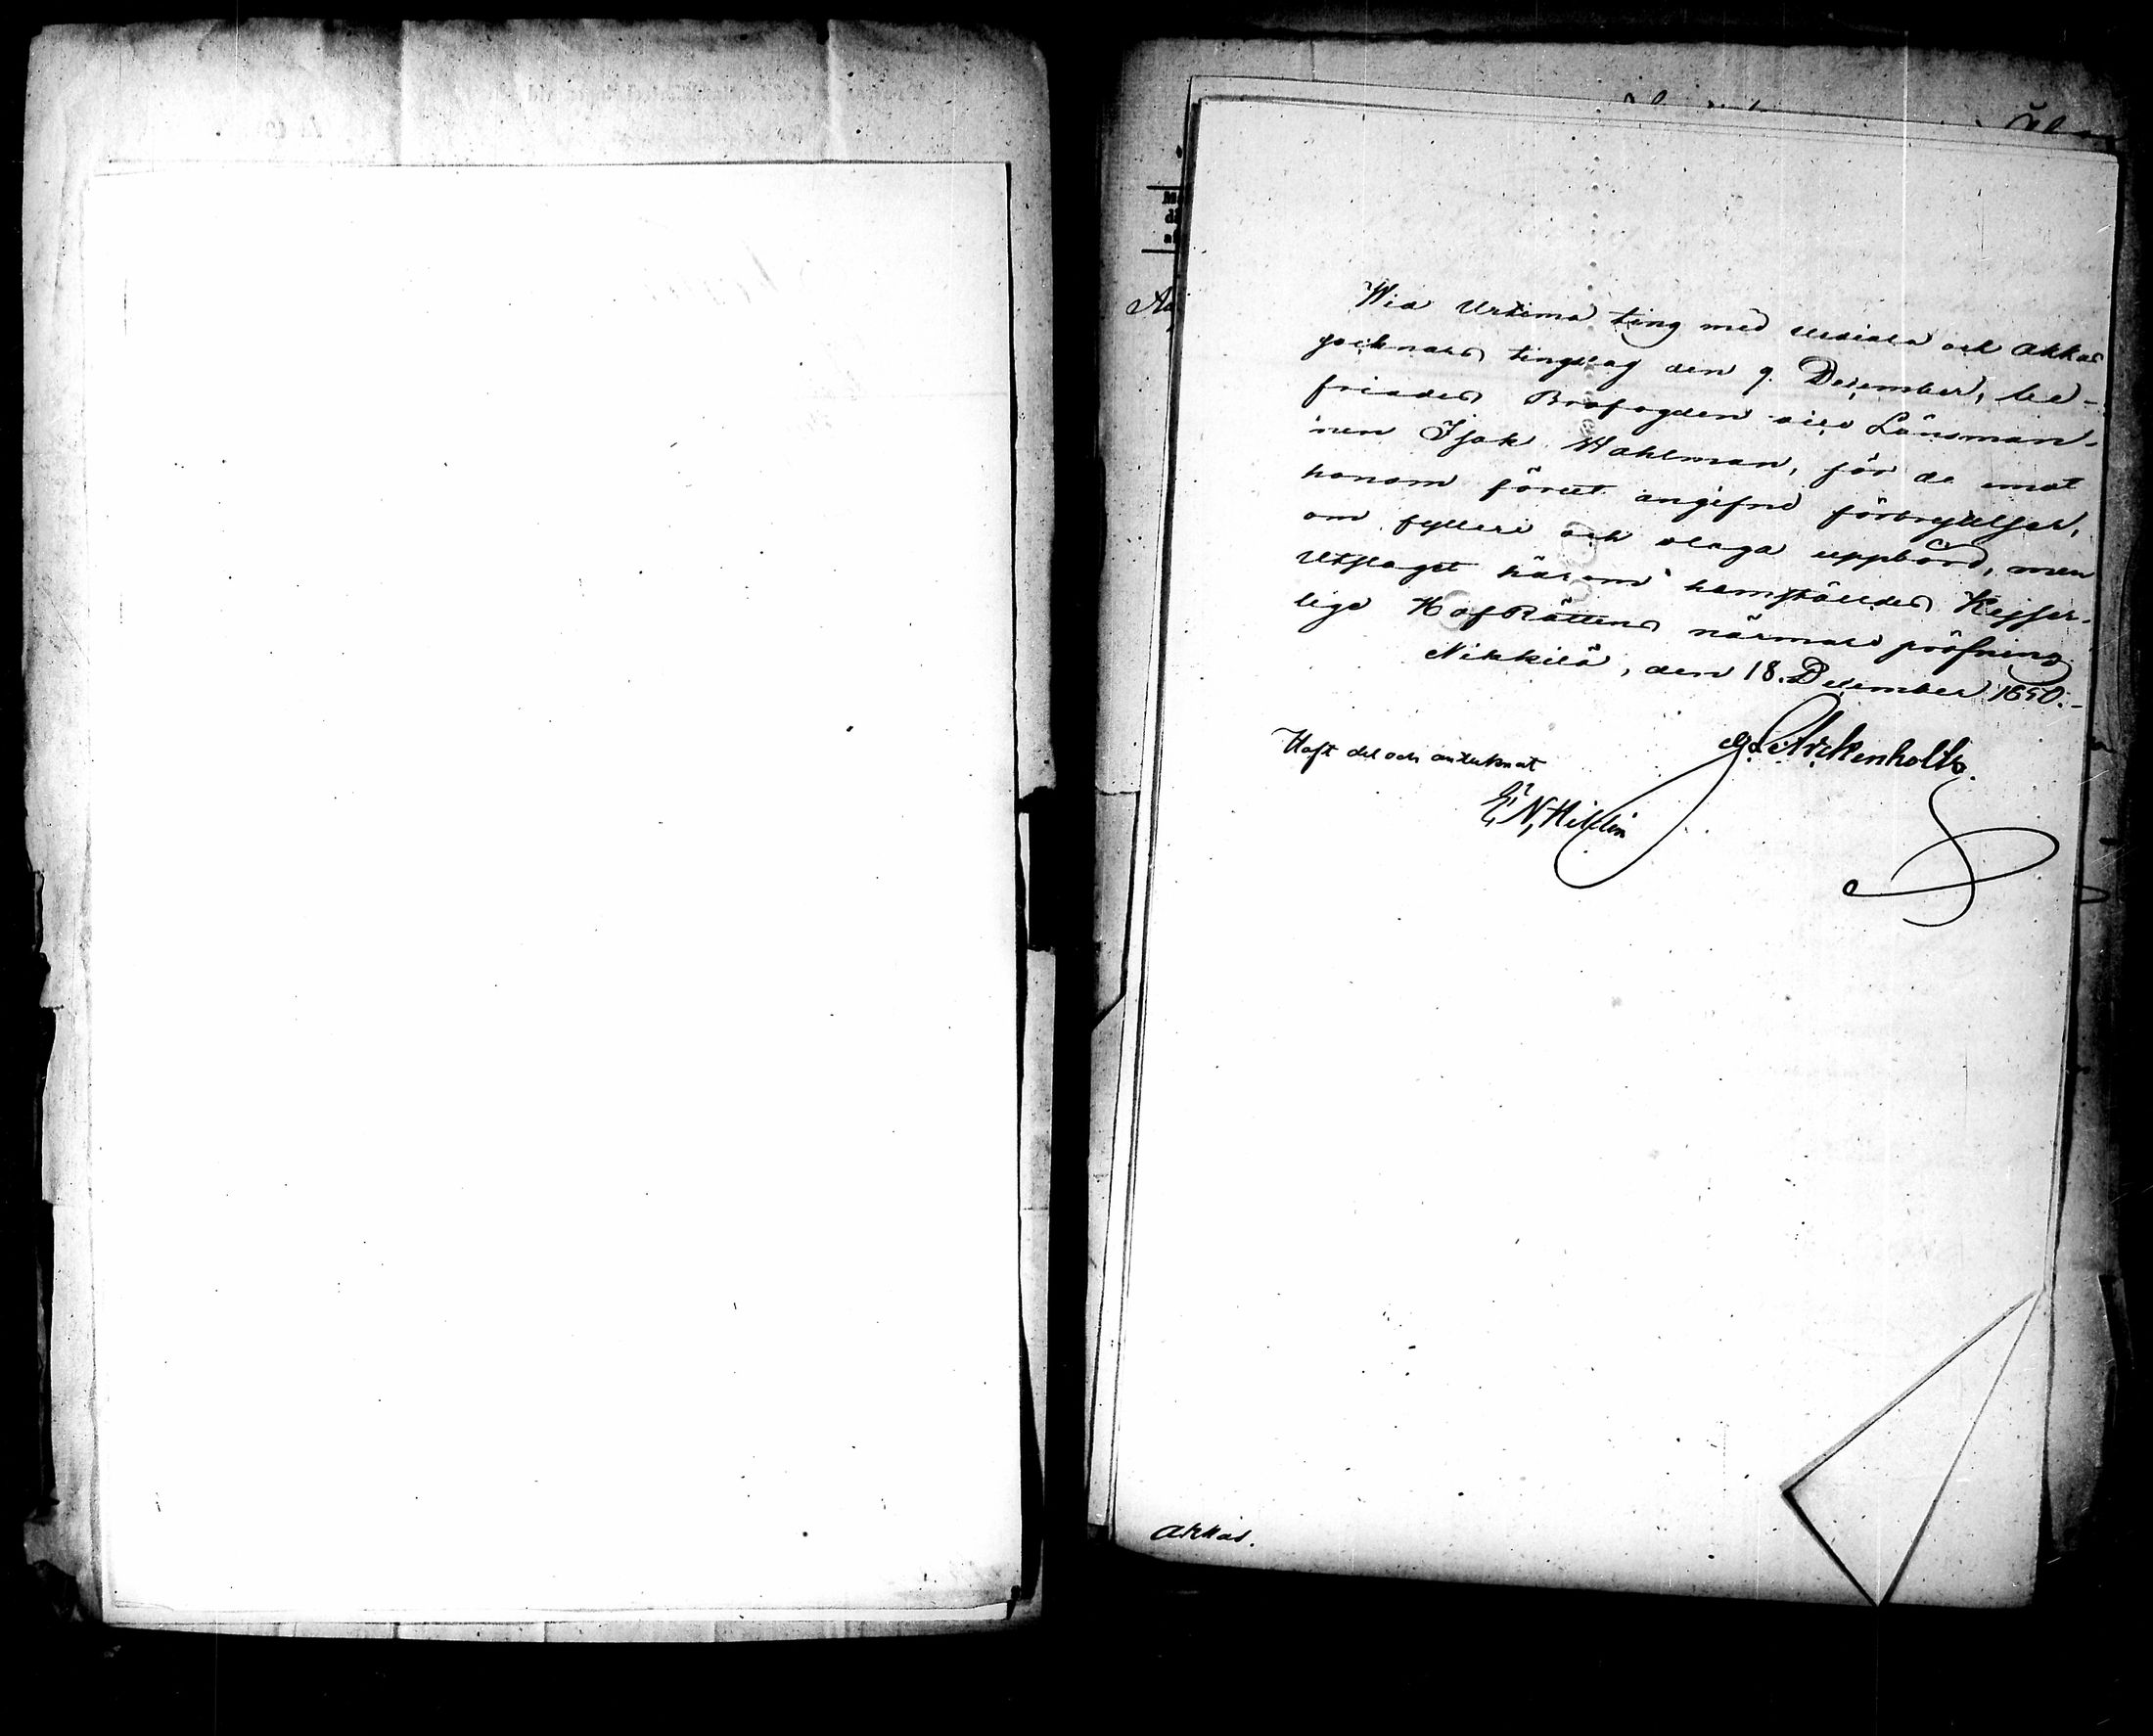 Wid Urtima ting med Urdiala och Akkas
socknars tingslag den 9. December, be-
friades Brofogden vice Länsman-
nen Isak Wahlman, för de emot
honom förut angifne förbrytelser,
om fylleri och olaga uppbörd, men
utslaget härom hemställdes Kejser-
lige HofRättens närmare pröfning.
Nikkilä, den 18. December 1850.
G. Arckenholtz.
Haft del och antecknat
E. N. Hildén
Akkas.